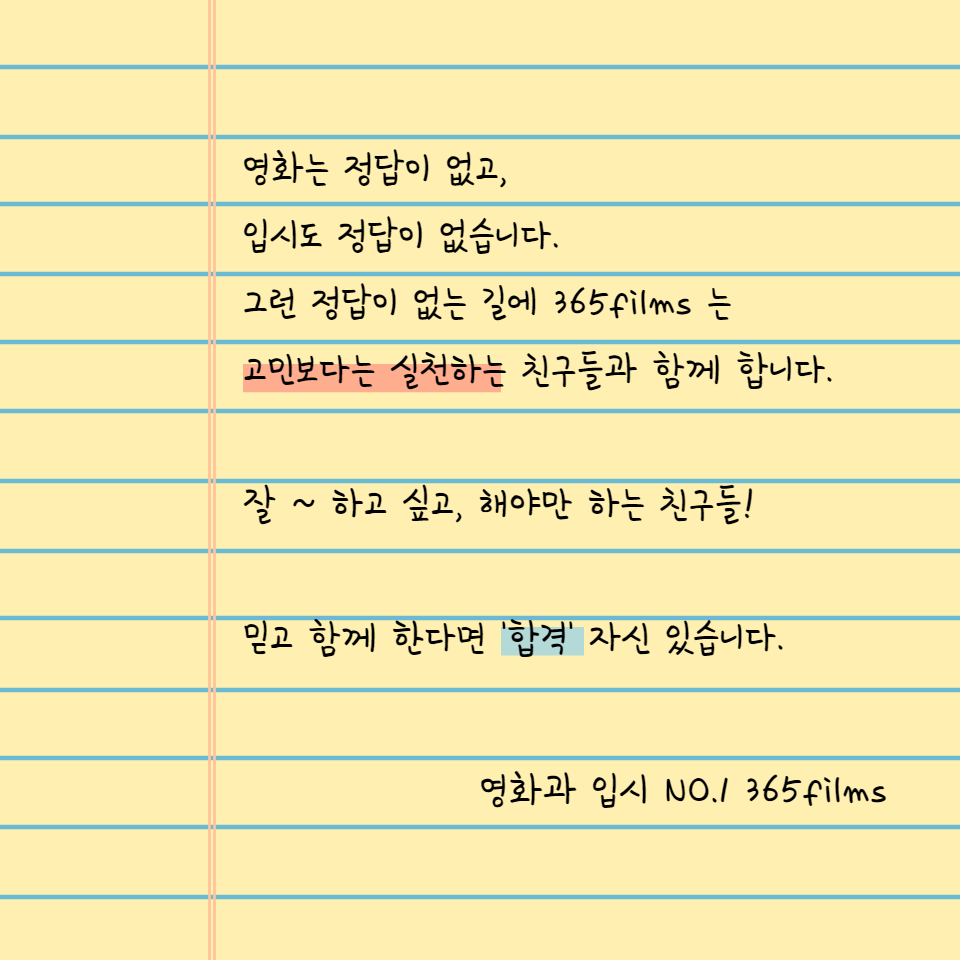 영화는 정답이 없고,
입시도 정답이 없습니다.
그런 정답이 없는 길에 365films 는
고민보다는 실천하는 친구들과 함께 합니다.
잘 ~ 하고 싶고, 해야만 하는 친구들!
믿고 함께 한다면 '합격' 자신 있습니다.
영화과 입시 NO.1 365films